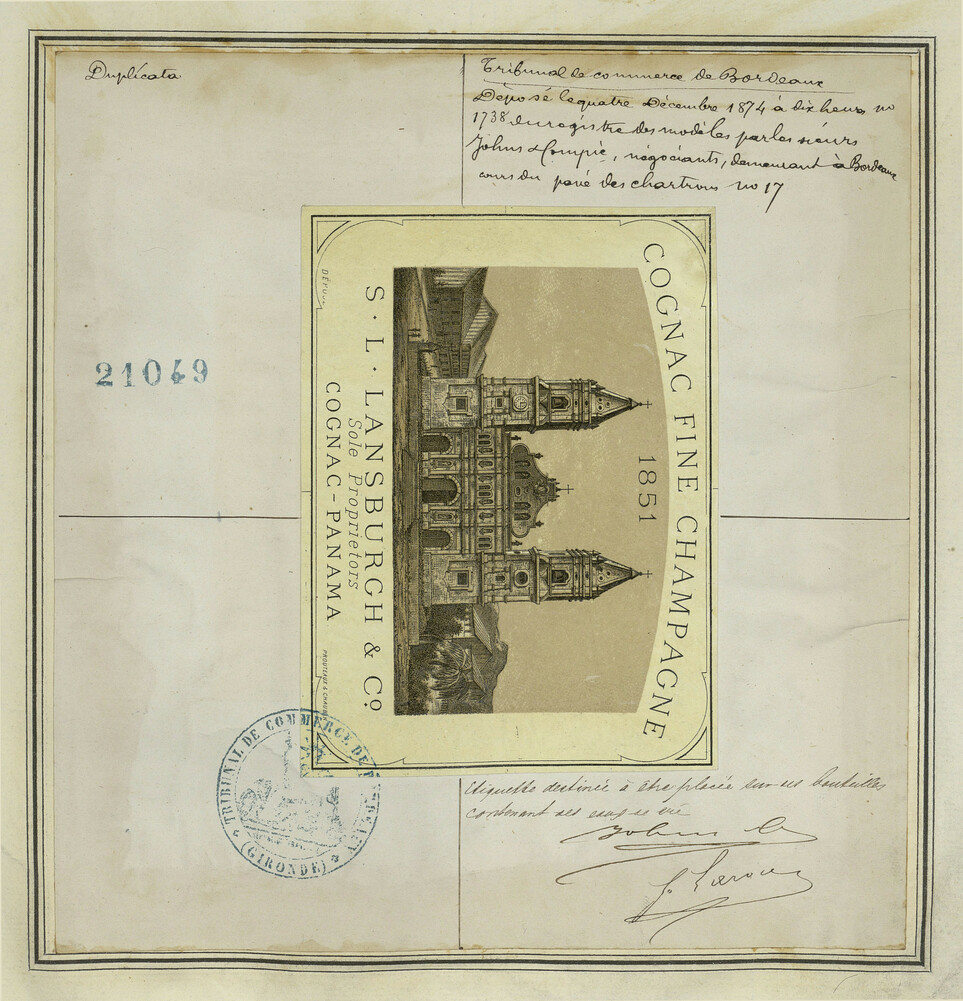 Duplicata
Tribunal de commerce de Bordeaux
Déposé le quatre Décembre 1874 à dix heures no
1738 du registre des modèles par les sieurs
Johns & Compie, négociants, demeurant à Bordeaux
cours du pavé des chartrons no 17
COGNAC FINE CHAMPAGNE
1851
S. L. LANSBURGH & Co.
Sole Proprietors
COGNAC-PANAMA
21049
TRIBUNAL DE COMMERCE DE
(GIRONDE)
étiquette destinée à être placée sur des bouteilles
contenant des eaux de vie